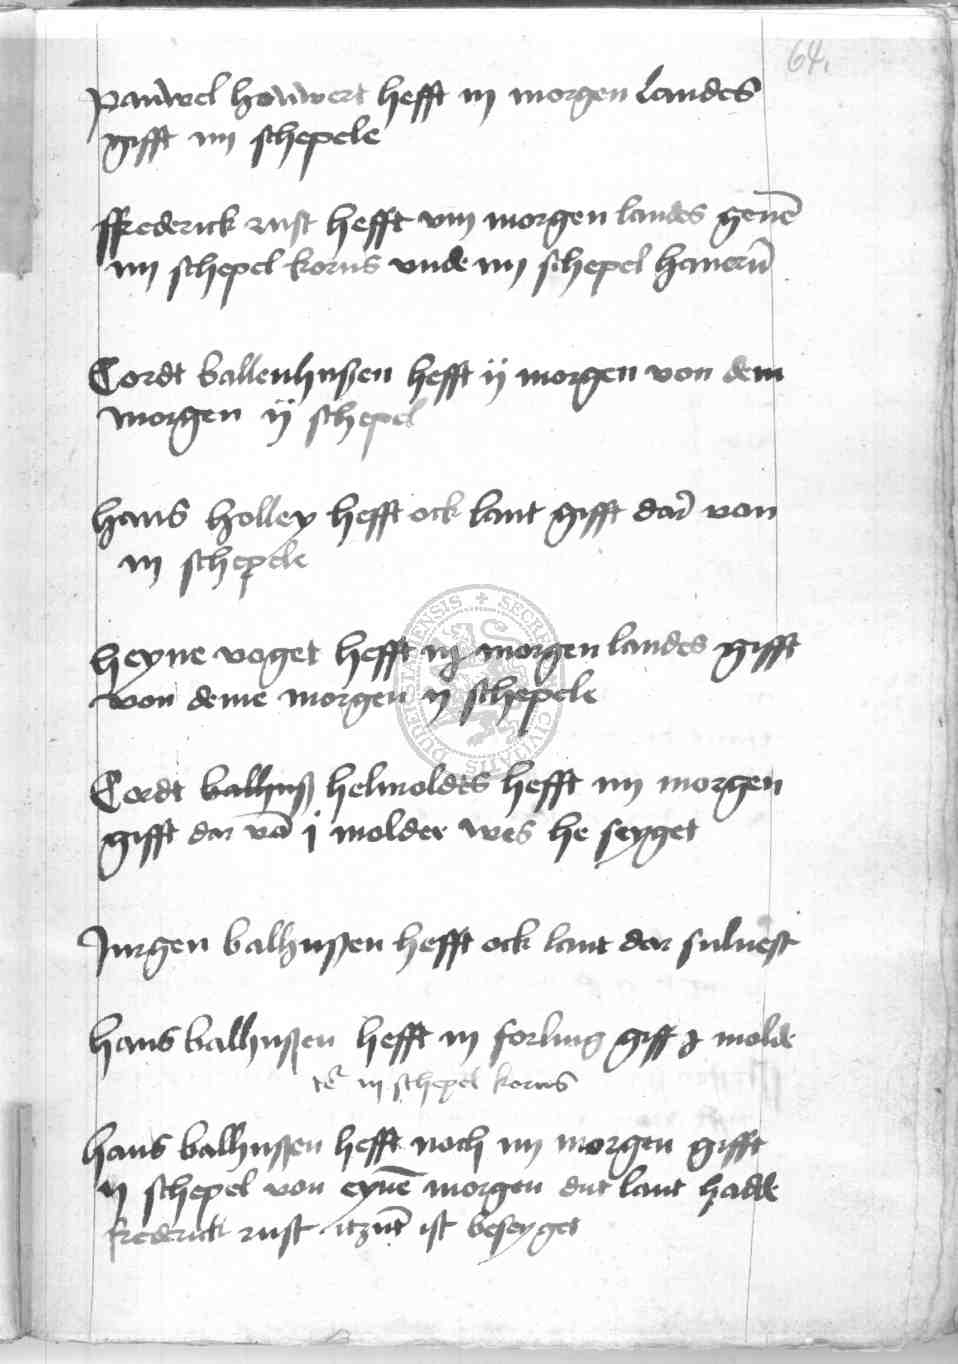 64.
Pauwel houwert hefft iij morgen landes
gifft iiij schepele
ffrederick rust hefft viij morgen landes geuē
iiij schepel korns vnde iiij schepel hauerū
Cordt ballenhußen hefft ij morgen von dem
morgen ij schepel
hans holley hefft ock lant gifft dar von
iij schepele
heyne voget hefft morgen landes gifft
von deme morgen ij schepele
Cordt ballhuß helmoldes hefft iiij morgen
gifft dar vā j molder wes he seyget
Jurgen balhußen hefft ock lant dar suluest
hans ballhußen hefft iij forling giff molde
iij schepel korns
hans balhußen hefft noch iiij morgen gifft
ij schepel von eynē morgen dut lant hadde
frederick rust itzūt ist beseyget
SECRE CIVITATIS DUDERSTADENSIS